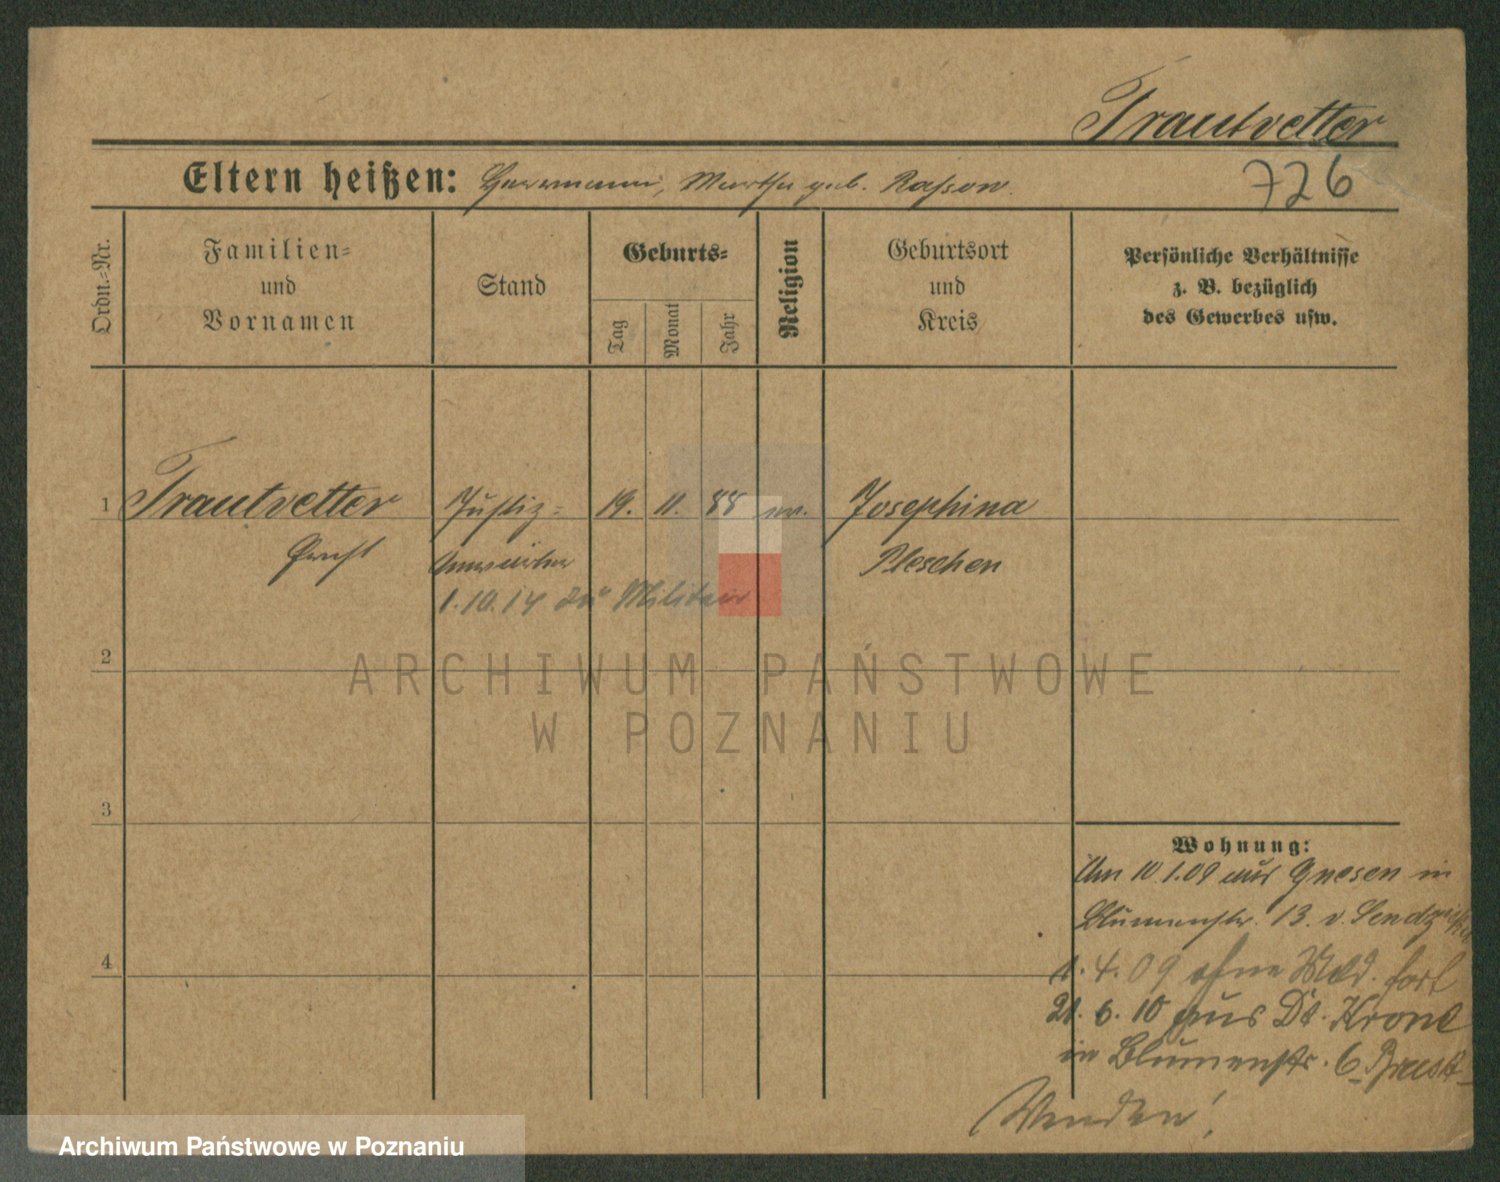 Trautvetter
Eltern heißen: Herrmann, Martha geb. Rassow.
726
Ordn.-Nr.
Familien-
und
Vornamen
Stand
Geburts-
Tag
Monat
Jahr
Religion
Geburtsort
und
Kreis
Persönliche Verhältnisse
z. B. bezüglich
des Gewerbes usw.
1 Trautvetter Justiz- 19. 11. 88 ev. Josephina
Ernst Anwärter Pleschen
1.10.14 zu Militair
2
3
4
Wohnung:
Am 10.1.09 aus Gnesen in
Blumenstr. 13. v.
1.4.09 ohne Meld. fort
21.6.10 aus Dt. Krone
in Blumenstr. 6
Wenden!
ARCHIWUM PAŃSTWOWE
W POZNANIU
Archiwum Państwowe w Poznaniu